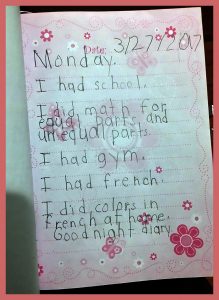 Date: 3/27/2017
Monday.
I had school.
I did math for
equal parts, and
unequal parts.
I had gym.
I had french.
I did colors in
French at home.
Good night diary